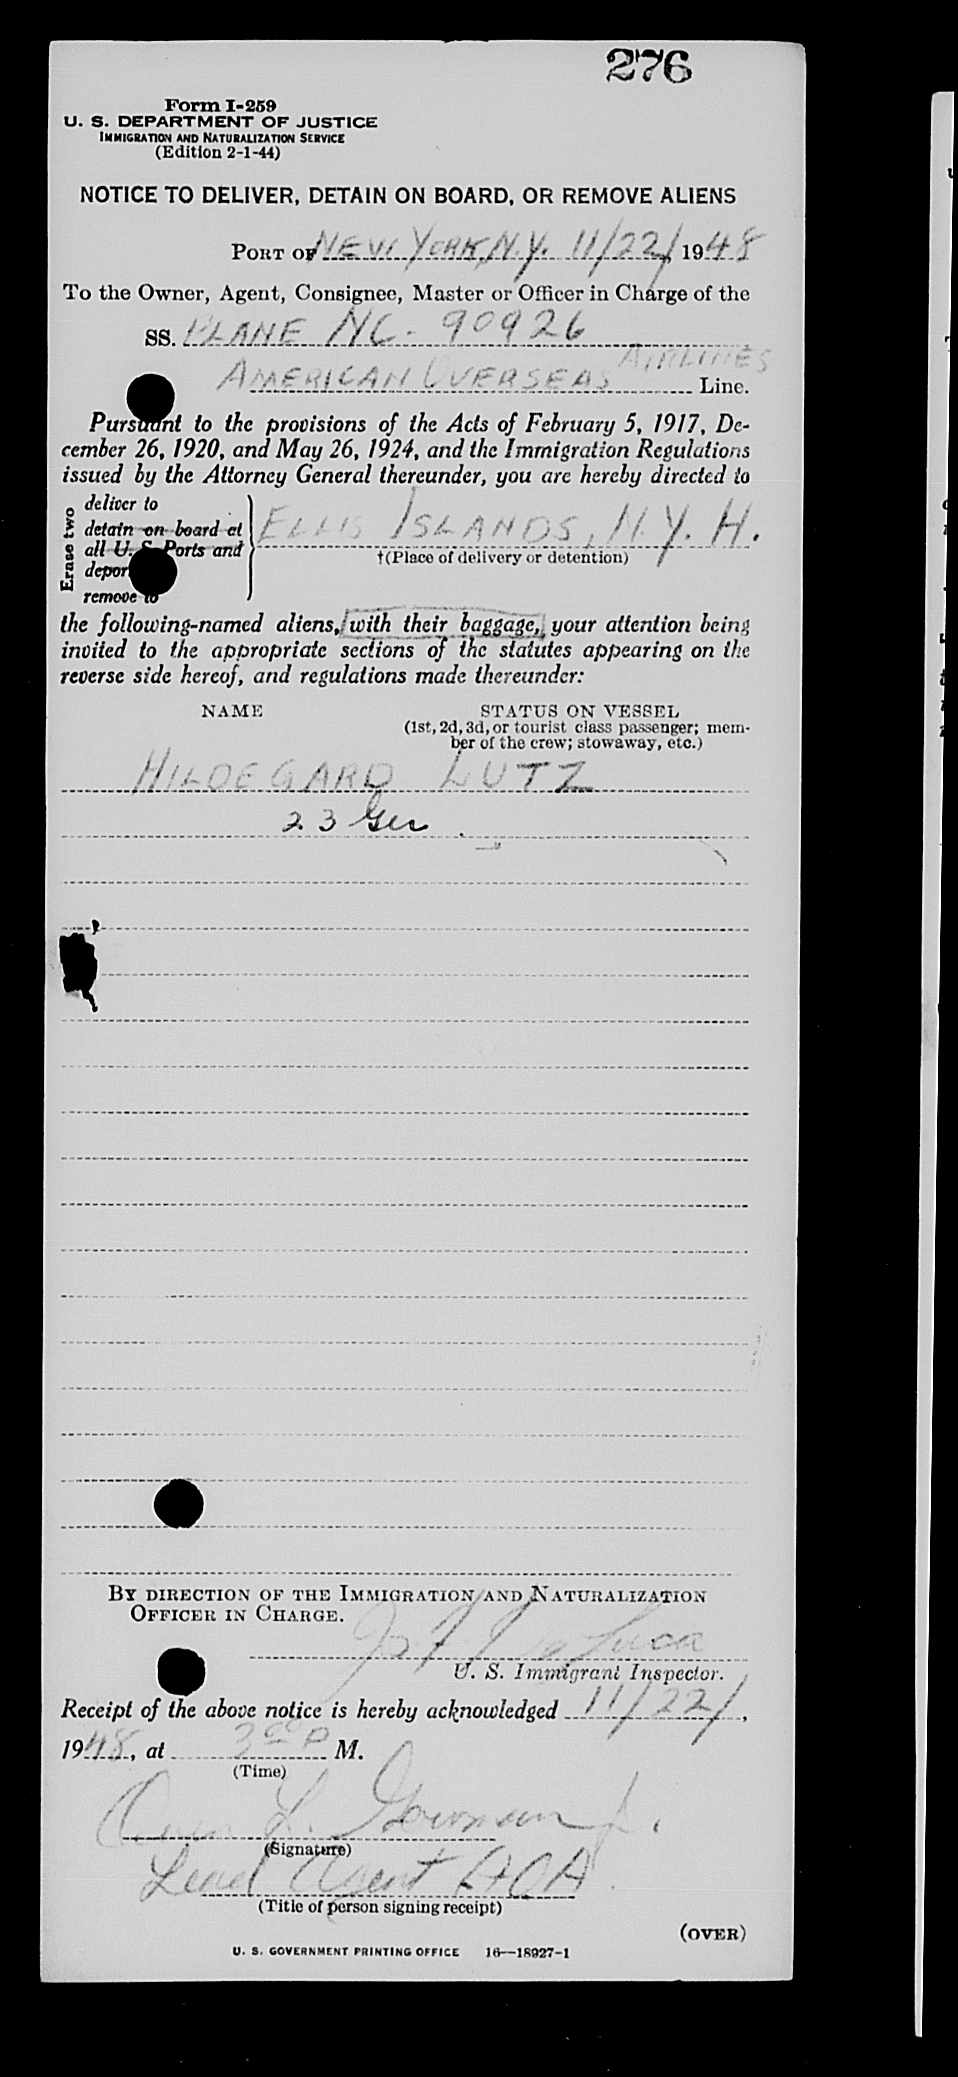 276
Form I-259
U. S. DEPARTMENT OF JUSTICE
IMMIGRATION AND NATURALIZATION SERVICE
(Edition 2-1-44)
NOTICE TO DELIVER, DETAIN ON BOARD, OR REMOVE ALIENS
PORT OF NEW YORK, N.Y. 11/22/, 1948
To the Owner, Agent, Consignee, Master or Officer in Charge of the
SS. PLANE NC-90926
AMERICAN OVERSEAS AIRLINES Line.
Pursuant to the provisions of the Acts of February 5, 1917, De-
cember 26, 1920, and May 26, 1924, and the Immigration Regulations
issued by the Attorney General thereunder, you are hereby directed to
Erase two
deliver to
detain on board at
all U. S. Ports and
depor
remove to
ELLIS ISLANDS, N.Y.H.
†(Place of delivery or detention)
the following-named aliens, with their baggage, your attention being
invited to the appropriate sections of the statutes appearing on the
reverse side hereof, and regulations made thereunder:
NAME STATUS ON VESSEL
(1st, 2d, 3d, or tourist class passenger; mem-
ber of the crew; stowaway, etc.)
HILDEGARD LUTZ
23 Ger
BY DIRECTION OF THE IMMIGRATION AND NATURALIZATION
OFFICER IN CHARGE.
Luca
U. S. Immigrant Inspector.
Receipt of the above notice is hereby acknowledged 11/22/,
1948, at 3 00 P M.
(Time)
L. Jr.
(Signature)
Lead Agent AOA
(Title of person signing receipt)
(OVER)
U. S. GOVERNMENT PRINTING OFFICE 16—18927-1